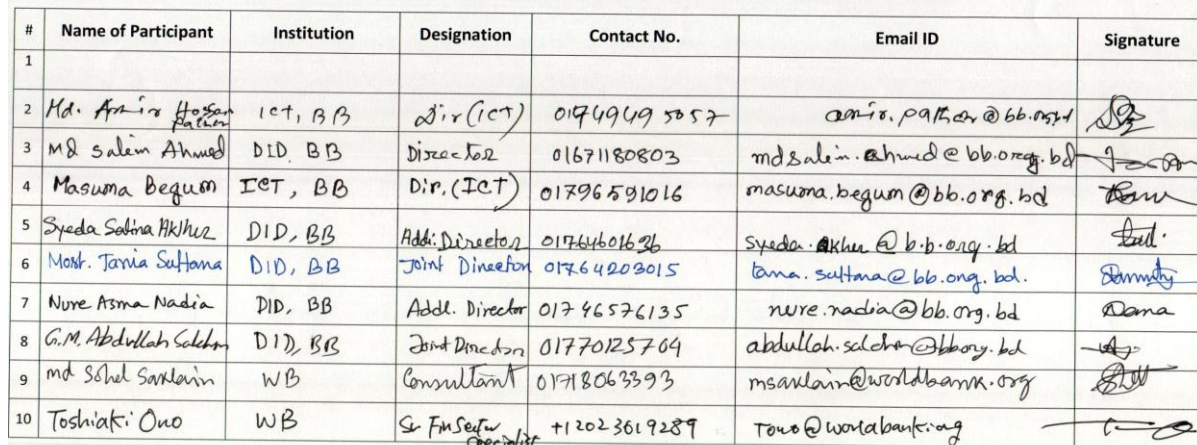 # Name of Participant Institution Designation Contact No. Email ID Signature
1
2 Md. Amir Hossen Pathan ICT, BB Dir (ICT) 01749495057 amir.pathan@bb.org.bd
3 Md Salim Ahmed DID, BB Director 01671180803 mdsalim.ahmed@bb.org.bd
4 Masuma Begum ICT, BB Dir. (ICT) 01796591016 masuma.begum@bb.org.bd
5 Syeda Akhter DID, BB Addi. Director syeda.akhter@b.b.org.bd
6 Most. Tania Sultana DID, BB Joint Director 01764203015 tania.sultana@bb.org.bd.
7 Nure Asma Nadia DID, BB Addl. Director 01746576135 nure.nadia@bb.org.bd
8 G.M. Abdullah DID, BB Joint Director 01770125704
9 md Sohel Saklain WB Consultant 01718063393 msaklain@worldbank.org
10 Toshiaki Ono WB Sr Fin Sector Specialist +12023619289 Tono@worldbank.org